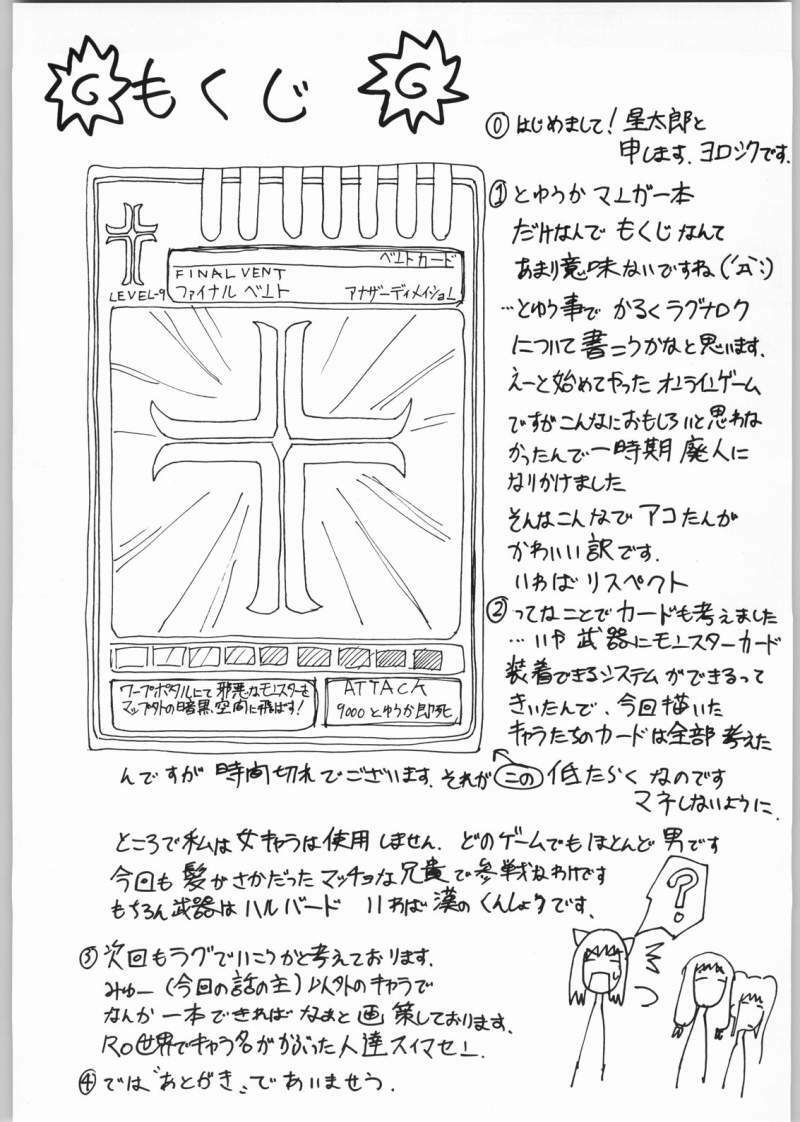 もくじ
⓪はじめまして！星太郎と
申します。ヨロシクです。
①とゆうかマンガ一本
だけなんで もくじなんて
あまり意味ないですね(´Д`;)
…とゆう事で かるくラグナロク
について書こうかなと思います。
えーと始めてやったオンラインゲーム
ですがこんなにおもしろいと思わな
かったんで一時期 廃人に
なりかけました
そんなこんなで アコたんが
かわいい訳です。
いわば リスペクト
②ってなことでカードも考えました
武器にモンスターカード
装着できるシステムができるって
きいたんで、今回描いた
キャラたちのカードは全部考えた
んですが時間切れでございます。それがこの低たらくなのです
マネしないように。
LEVEL-9
ベントカード
FINAL VENT
ファイナル ベント アナザーディメイション
ワープポタルにて邪悪なモンスターを
マップ外の暗黒空間に飛ばす！
ATTACK
9000とゆうか即死
ところで私は女キャラは使用しません。どのゲームでもほとんど男です
今回も髪がさかだったマッチョな兄貴で参戦なわけです
もちろん武器はハルバード いわば漢のくんしょうです。
③次回もラグでいこうかと考えております。
みゅー(今回の話の主)以外のキャラで
なんか一本できればなぁと画策しております。
RO世界でキャラ名がかぶった人達スイマセン。
④では"あとがき"であいませう。
?